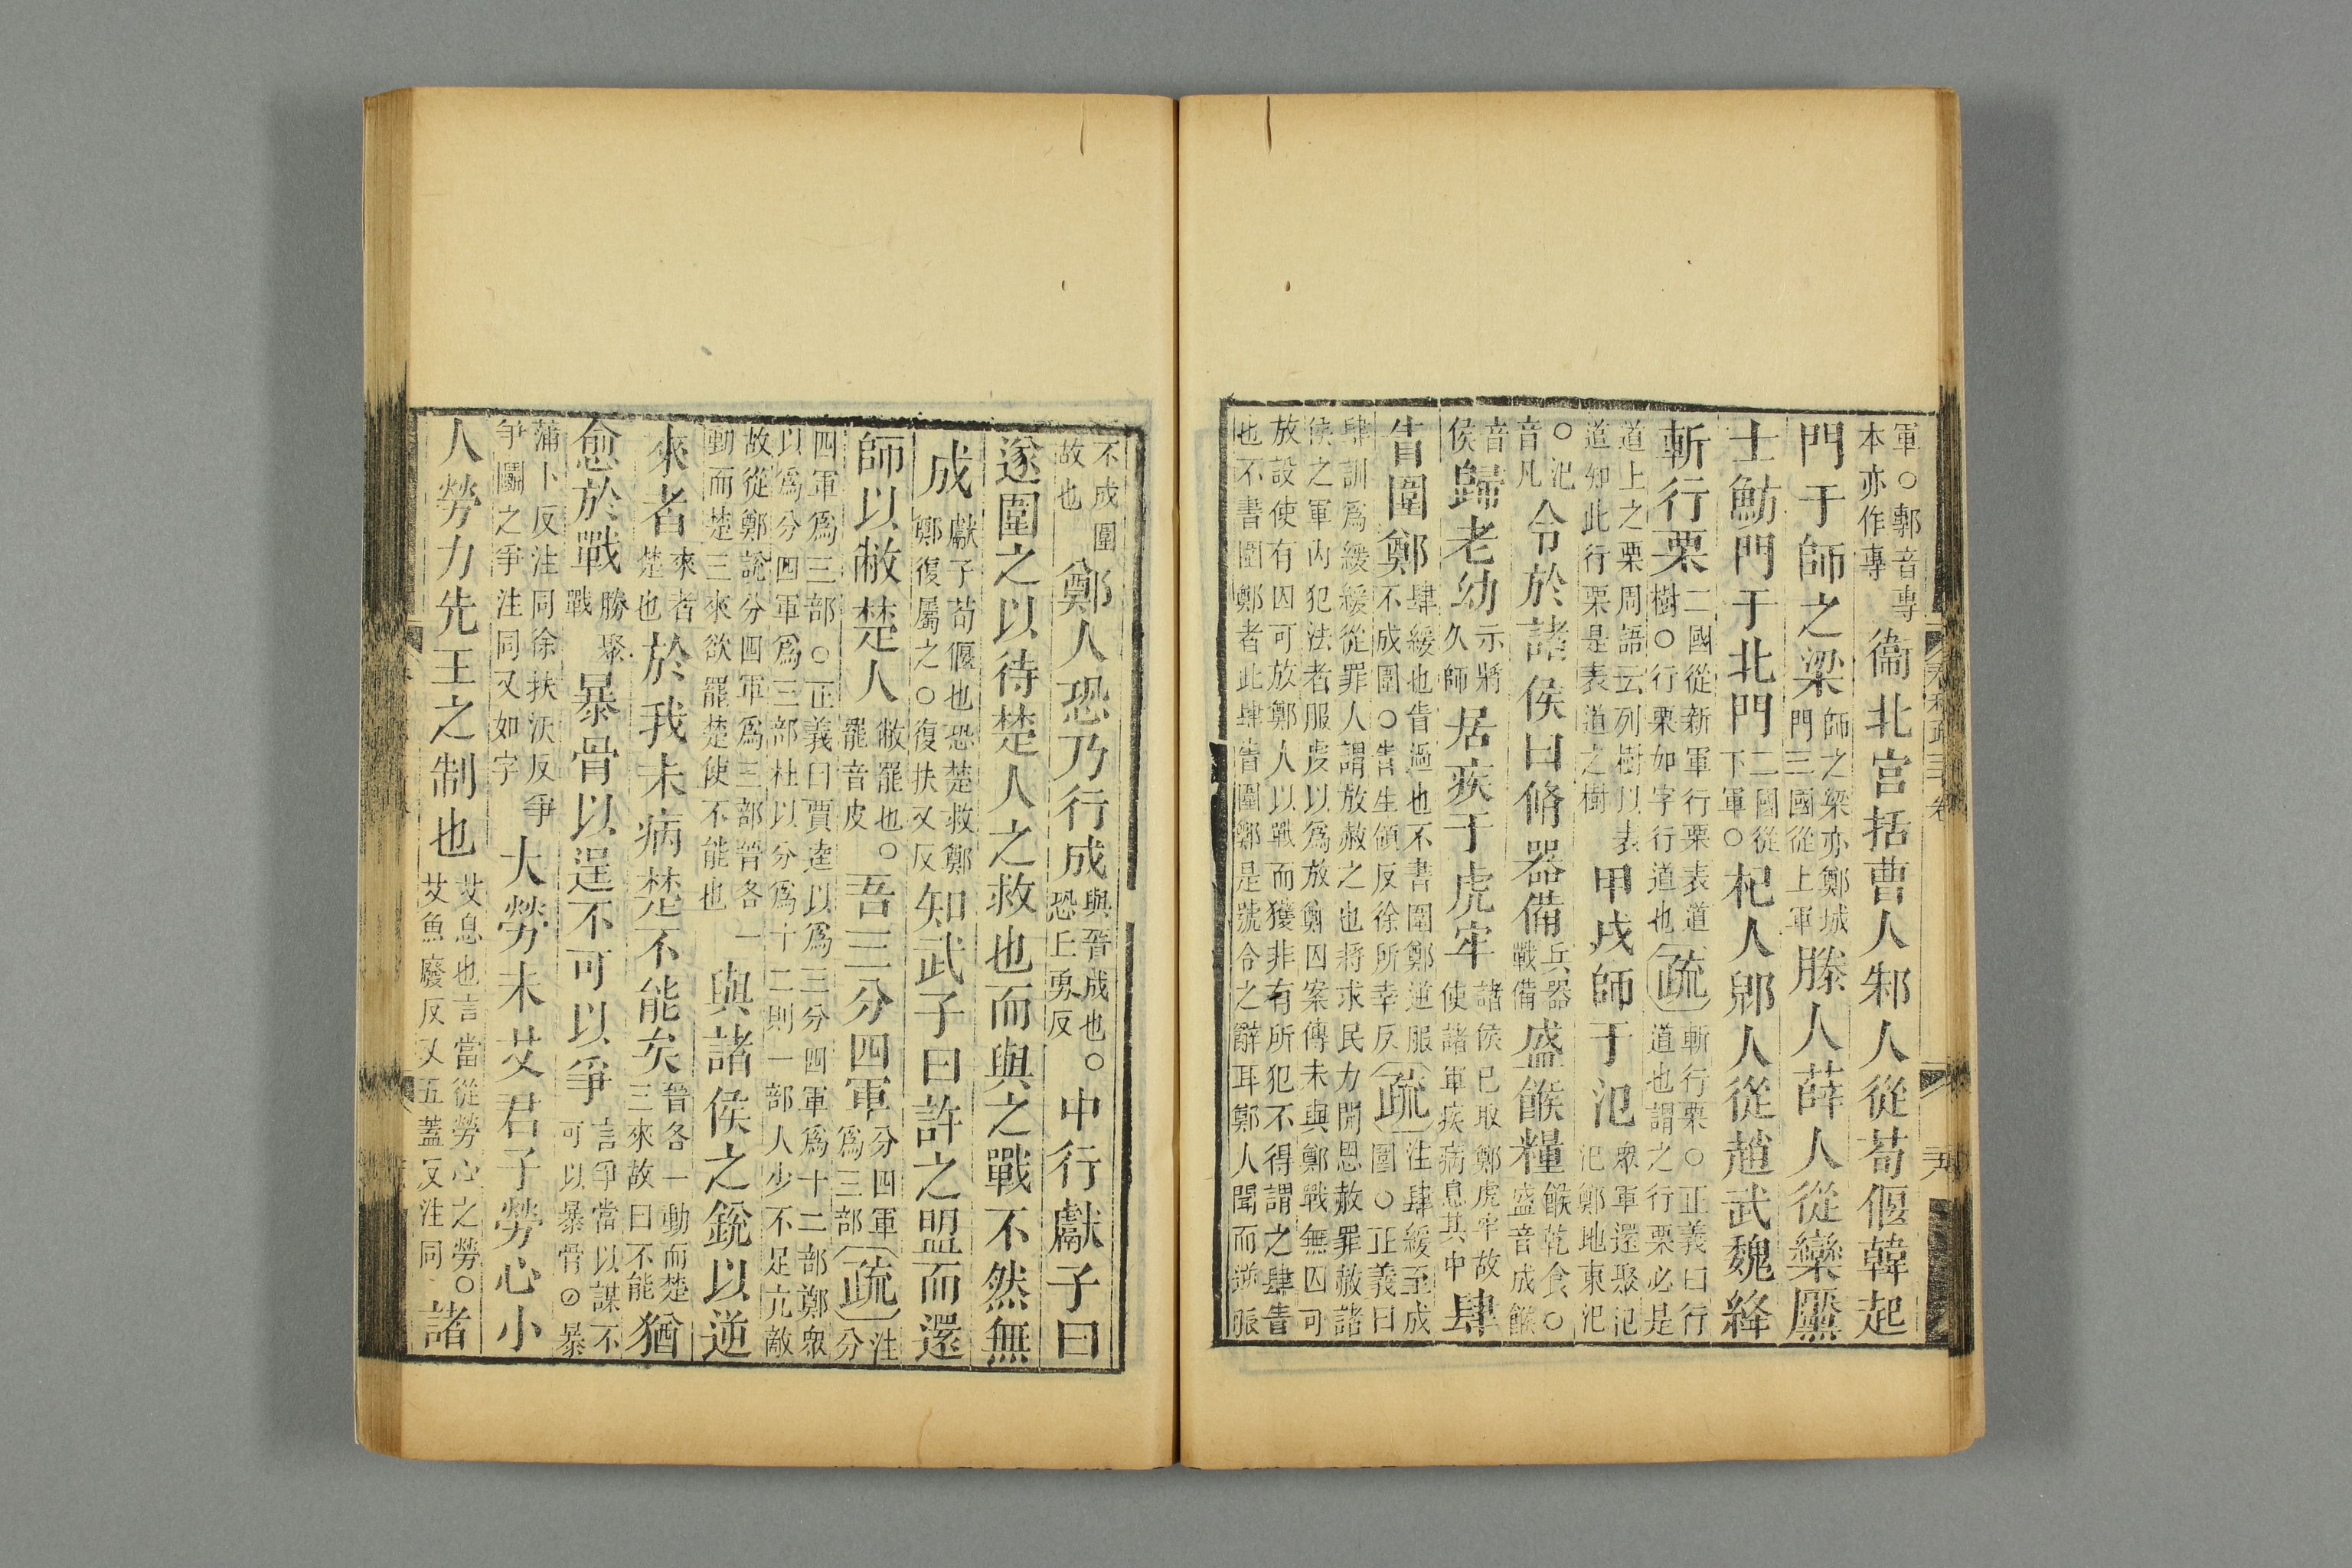 軍○鄟音專本亦作專衞北宮括曹人邾人從荀偃韓起
門于師之梁師之梁亦鄭城門三國從上軍滕人薛人從欒黶
士魴門于北門二國從下軍○杞人郳人從趙武魏絳
斬行栗二國從新軍行栗表道樹○行栗如字行道也疏斬行栗○正義曰行道也謂之行栗必是
道上之栗周語云列樹以表道知此行栗是表道之樹甲戌師于氾衆軍還聚氾氾鄭地東氾
○氾音凡令於諸侯曰脩器備兵器戰備盛餱糧餱乾食○盛音成餱
音侯歸老幼示將久師居疾于虎牢諸侯已取鄭虎牢故使諸軍疾病息其中肆
眚圍鄭肆緩也眚過也不書圍鄭逆服不成圍○眚生領反徐所幸反疏注肆緩至成圍○正義曰
肆訓爲緩緩從罪人謂放赦之也將求民力開恩赦罪赦諸
侯之軍內犯法者服虔以爲放鄭囚案傳未與鄭戰無囚可
放設使有囚可放鄭人以戰而獲非有所犯不得謂之肆眚
也不書圍鄭者此肆眚圍鄭是號令之辭耳鄭人聞而逆服
不成圍故也鄭人恐乃行成與晉成也○恐丘勇反中行獻子曰
遂圍之以待楚人之救也而與之戰不然無
成獻子荀偃也恐楚救鄭鄭復屬之○復扶又反知武子曰許之盟而還
師以敝楚人敝罷也○罷音皮吾三分四軍分四軍爲三部疏注分
四軍爲三部○正義曰賈逵以爲三分四軍爲十二部鄭衆
以爲分四軍爲三部杜以分爲十二則一部人少不足亢敵
故從鄭說分四軍爲三部晉各一
動而楚三來欲罷楚使不能也與諸侯之銳以逆
來者來者楚也於我未病楚不能矣晉各一動而楚三來故曰不能猶
愈於戰勝聚戰暴骨以逞不可以爭言爭當以謀不可以暴骨○暴
蒲卜反注同徐扶沃反爭爭鬬之爭注同又如字大勞未艾君子勞心小
人勞力先王之制也艾息也言當從勞心之勞○艾魚廢反又五蓋反注同諸